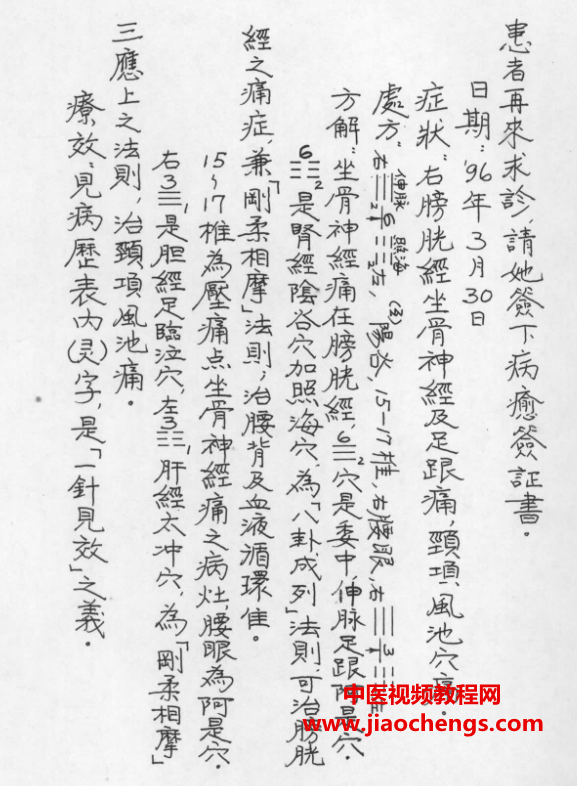 患者再來求診，請她簽下病癒簽証書。
日期：'96年3月30日
症狀：右膀胱經坐骨神經及足跟痛，頸項風池穴痛。
處方：右 申脉 6 2 照海 左、(主)陽谷、15-17椎、右腰眼、右 3
方解：坐骨神經痛在膀胱經，6 2 穴是委中，申脉足跟阿是穴。
6 2 是腎經陰谷穴加照海穴，為「八卦成列」法則，可治膀胱
經之痛症，兼「剛柔相摩」法則；治腰背及血液循環佳。
15~17椎為壓痛点坐骨神經痛之病灶，腰眼為阿是穴。
右3 1 是胆經足臨泣穴 左3 1 肝經太冲穴，為「剛柔相摩」
三應上之法則，治頸項風池痛。
療效：見病歷表內(灵)字，是「一針見效」之義。
中医视频教程网
www.jiaochengs.com